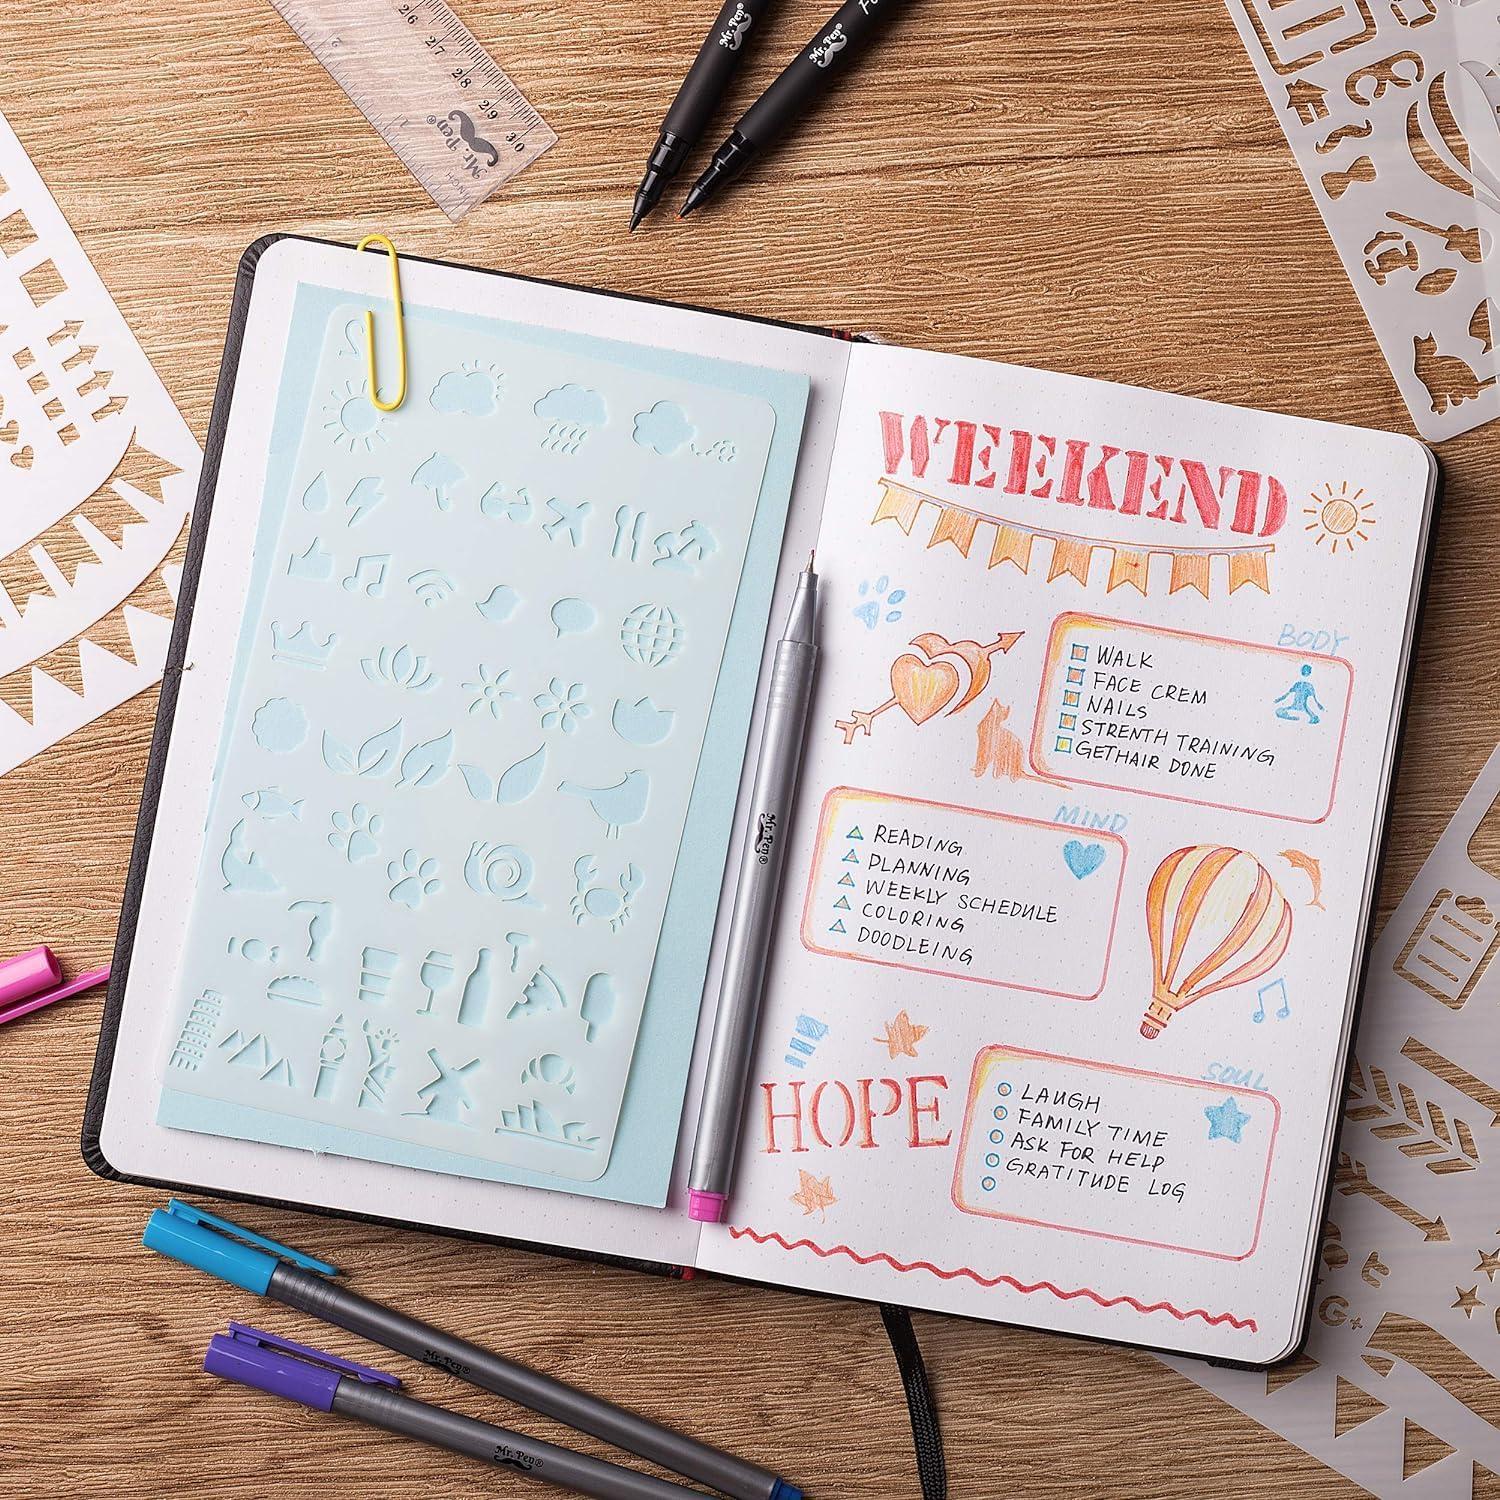 26 27 28 29 30
2 1
Mr. Pen®
INCH
Mr. Pen®
Mr. Pen®
WEEKEND
BODY
WALK
FACE CREM
NAILS
STRENTH TRAINING
GETHAIR DONE
MIND
READING
PLANNING
WEEKLY SCHEDULE
COLORING
DOODLEING
HOPE
SOUL
LAUGH
FAMILY TIME
ASK FOR HELP
GRATITUDE LOG
Mr. Pen®
Mr. Pen®
Mr. Pen®